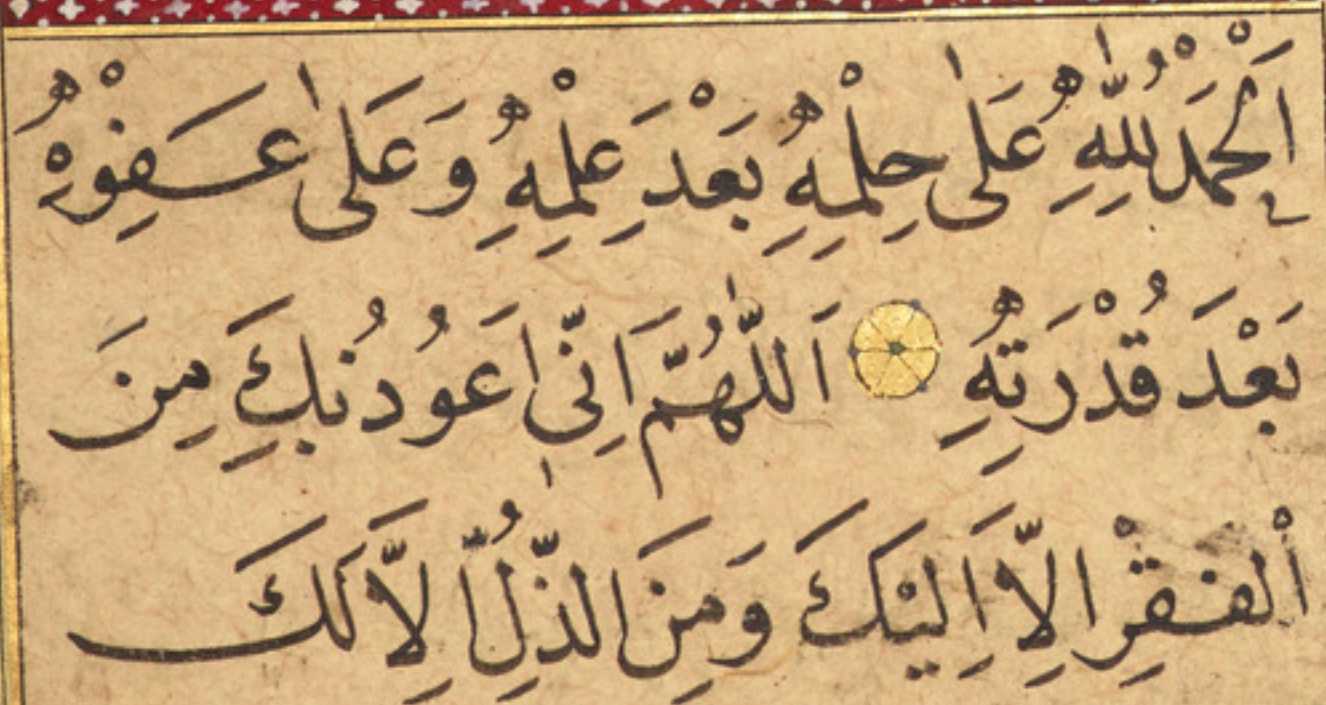 اَلْحَمْدُ لِلّٰهِ عَلٰى حِلْمِهِ بَعْدَ عِلْمِهِ وَعَلٰى عَفْوِهِ
بَعْدَ قُدْرَتِهِ اَللّٰهُمَّ اِنّٖى اَعُوذُ بِكَ مِنَ
الْفَقْرِ اِلَّا اِلَيْكَ وَمِنَ الذُّلِّ اِلَّا لَكَ